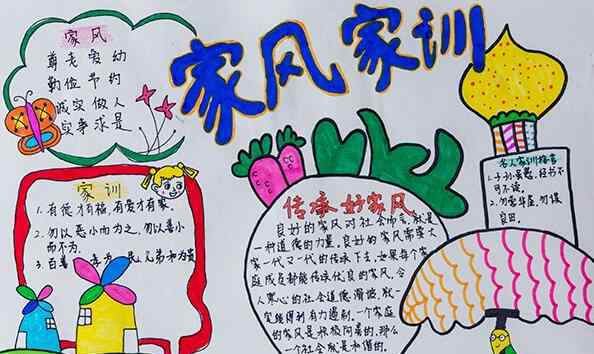 家风家训
家风
尊老爱幼
勤俭节约
诚实做人
实事求是
家训
1.有德才有福,有爱才有家.
2.勿以恶小而为之,勿以善小
而不为.
3.百善孝为先,兄弟和为贵
传承好家风
良好的家风对社会而言,就是
一种道德的力量。良好的家风需要大
家一代又一代的传承下去,如果每个家
庭成员都能传承优良的家风,令
人寒心的社会道德滑坡,就一
定能得到有力遏制。一个家庭
的家风是积极向善的,那么
一个社会就是和谐的.
名人家训格言
1.子孙虽愚,经书不
可不读。
2.勿营华屋,勿谋
良田。